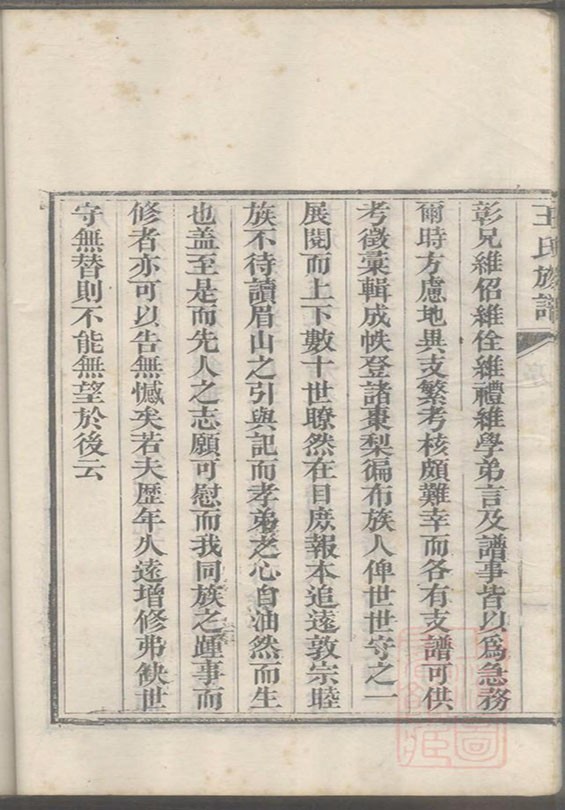 王氏族譜
序
彰兄維侶維佺維禮維學弟言及譜事皆以爲急務
爾時方慮地異支繁考核頗難幸而各有支譜可供
考徵彙輯成帙登諸棗梨徧布族人俾世世守之一
展閱而上下數十世瞭然在目庶報本追遠敦宗睦
族不待讀眉山之引與記而孝弟之心自油然而生
也盖至是而先人之志願可慰而我同族之踵事而
修者亦可以告無憾矣若夫歷年久遠增修弗缺世
守無替則不能無望於後云